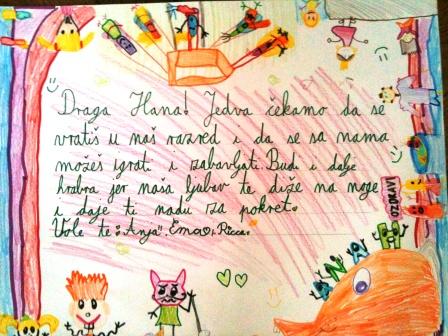 Draga Hana! Jedva čekamo da se
vratiš u naš razred i da se sa nama
možeš igrati i zabavljati. Budi i dalje
hrabra jer naša ljubav te diže na noge
i daje ti nadu za pokret.
Vole te: Anja, Ema i Ricca.
OZDRAVI